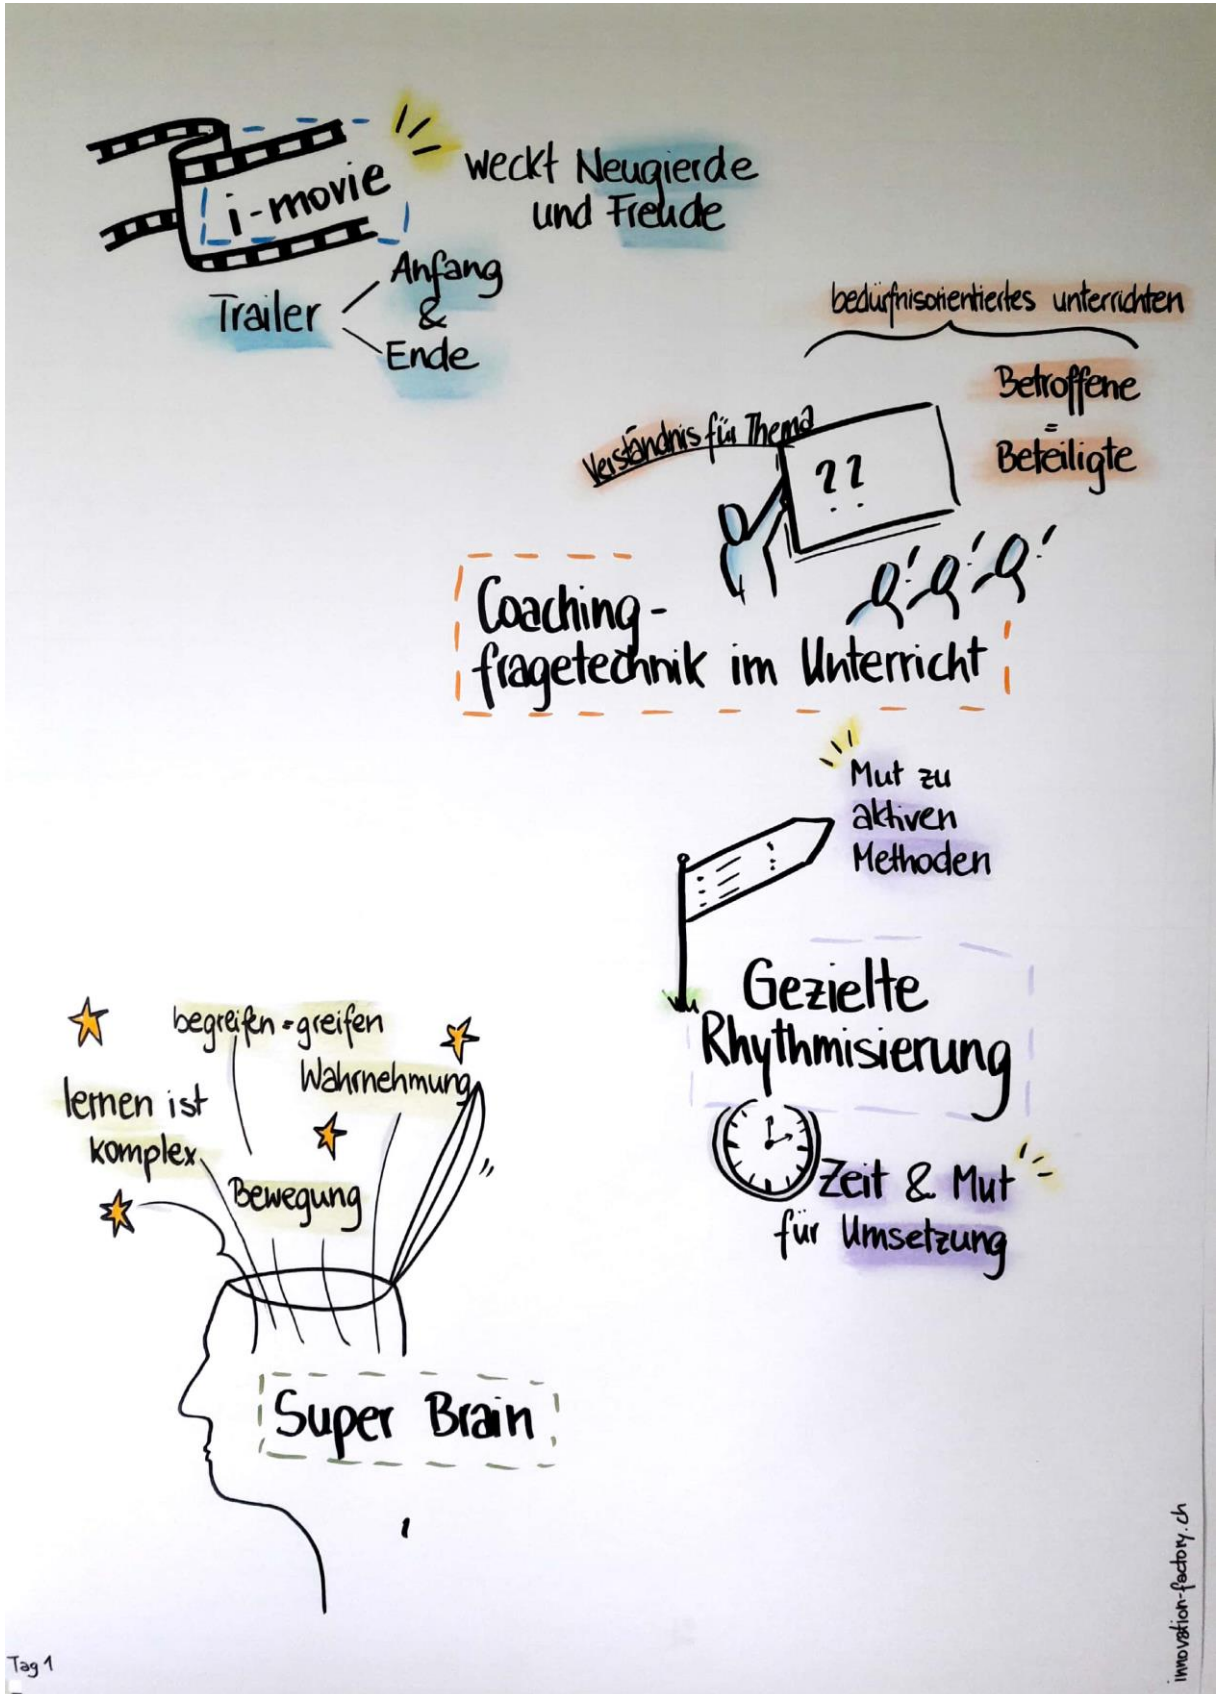 i-movie
weckt Neugierde
und Freude
Trailer
Anfang
&
Ende
bedürfnisorientiertes unterrichten
Betroffene
=
Beteiligte
Verständnis für Thema
??
Coaching-
fragetechnik im Unterricht
Mut zu
aktiven
Methoden
Gezielte
Rhythmisierung
Zeit & Mut
für Umsetzung
begreifen = greifen
Wahrnehmung
lernen ist
komplex
Bewegung
Super Brain
Tag 1
innovation-factory.ch